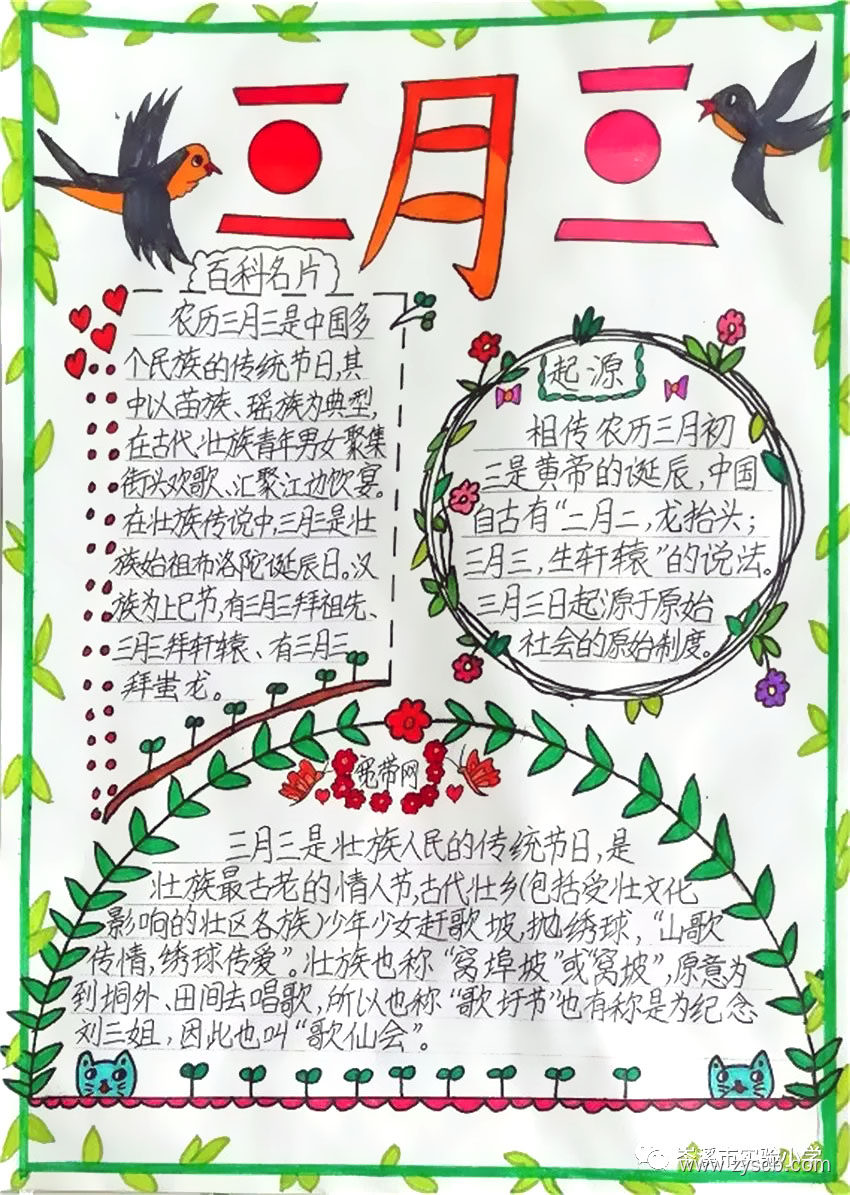 三月三
百科名片
农历三月三是中国多
个民族的传统节日,其
中以苗族、瑶族为典型,
在古代壮族青年男女聚集
街头欢歌、汇聚江边饮宴。
在壮族传说中,三月三是壮
族始祖布洛陀诞辰日。汉
族为上巳节,有三月三拜祖先、
三月三拜轩辕、有三月三
拜蚩龙。
起源
相传农历三月初
三是黄帝的诞辰,中国
自古有“二月二,龙抬头;
三月三,生轩辕”的说法。
三月三日起源于原始
社会的原始制度。
宽带网
三月三是壮族人民的传统节日,是
壮族最古老的情人节,古代壮乡(包括受壮文化
影响的壮区各族)少年少女赶歌坡,抛绣球,“山歌
传情,绣球传爱”。壮族也称“窝埠坡”或“窝坡”,原意为
到垌外、田间去唱歌,所以也称“歌圩节”也有称是为纪念
刘三姐,因此也叫“歌仙会”。
岑溪市实验小学
www.zyscb.com